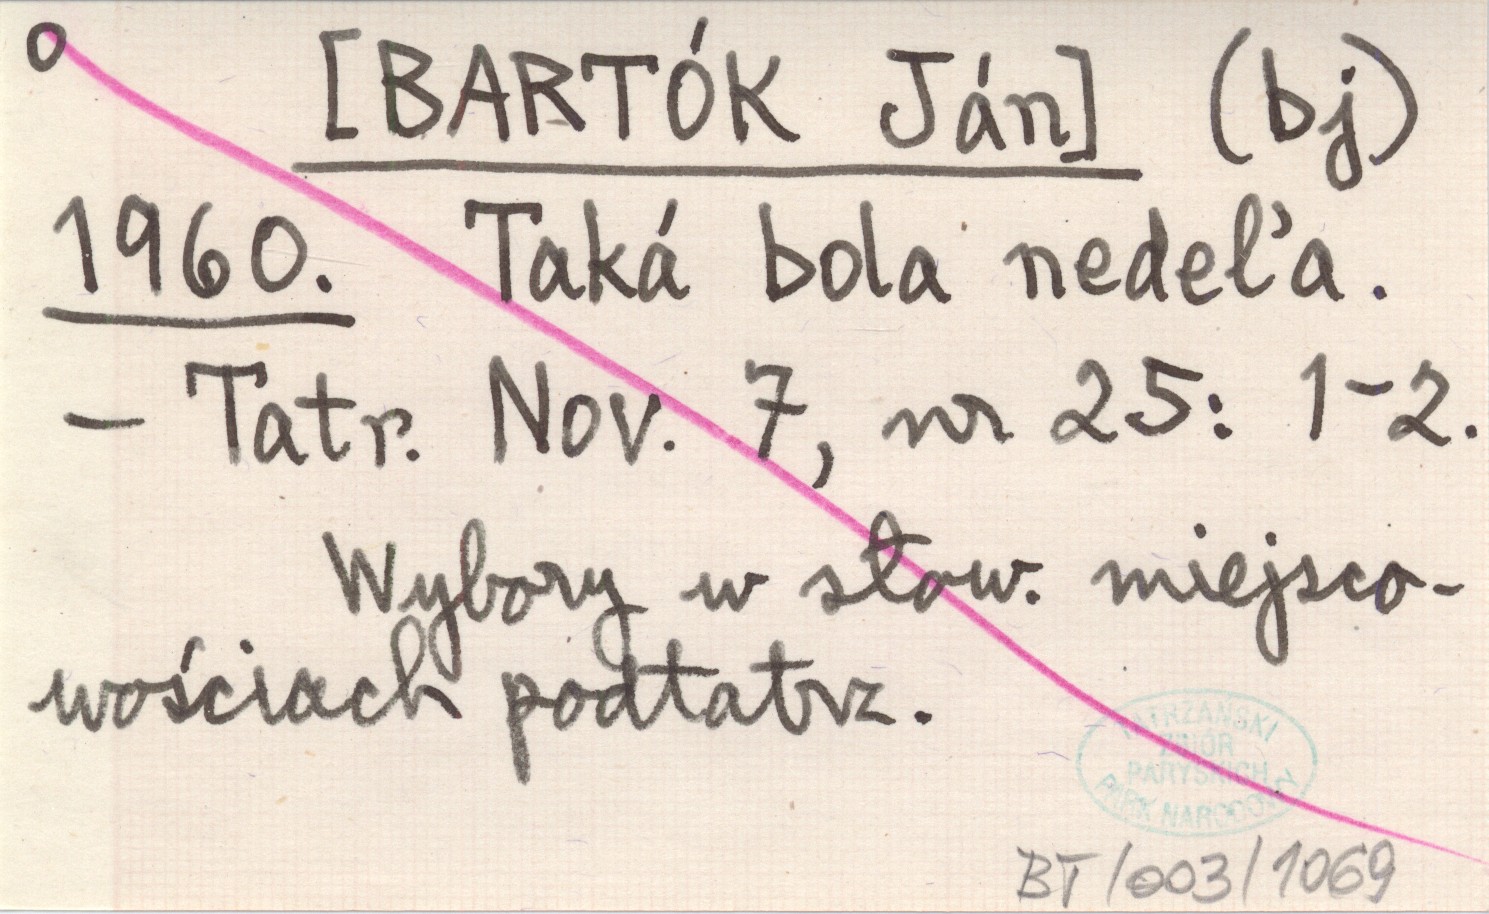 o [BARTÓK Ján] (bj)
1960. Taká bola nedeľa.
- Tatr. Nov. 7, nr 25: 1-2.
Wybory w słow. miejsco-
wościach podtatrz.
TATRZAŃSKI
ZBIÓR
PARYSKICH
PARK NARODOWY
BT/003/1069